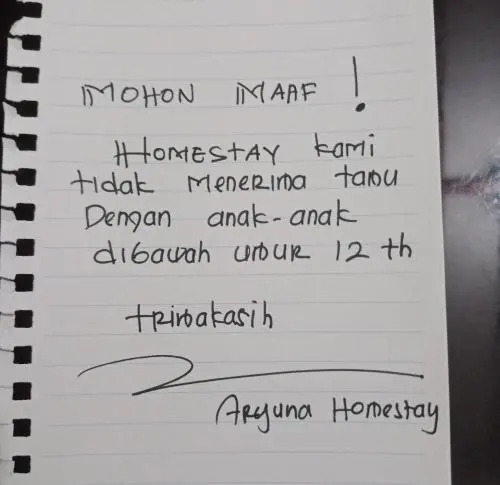 MOHON MAAF !
HOMESTAY kami
tidak Menerima tamu
Dengan anak-anak
dibawah umur 12 th
trimakasih
Aryuna Homestay